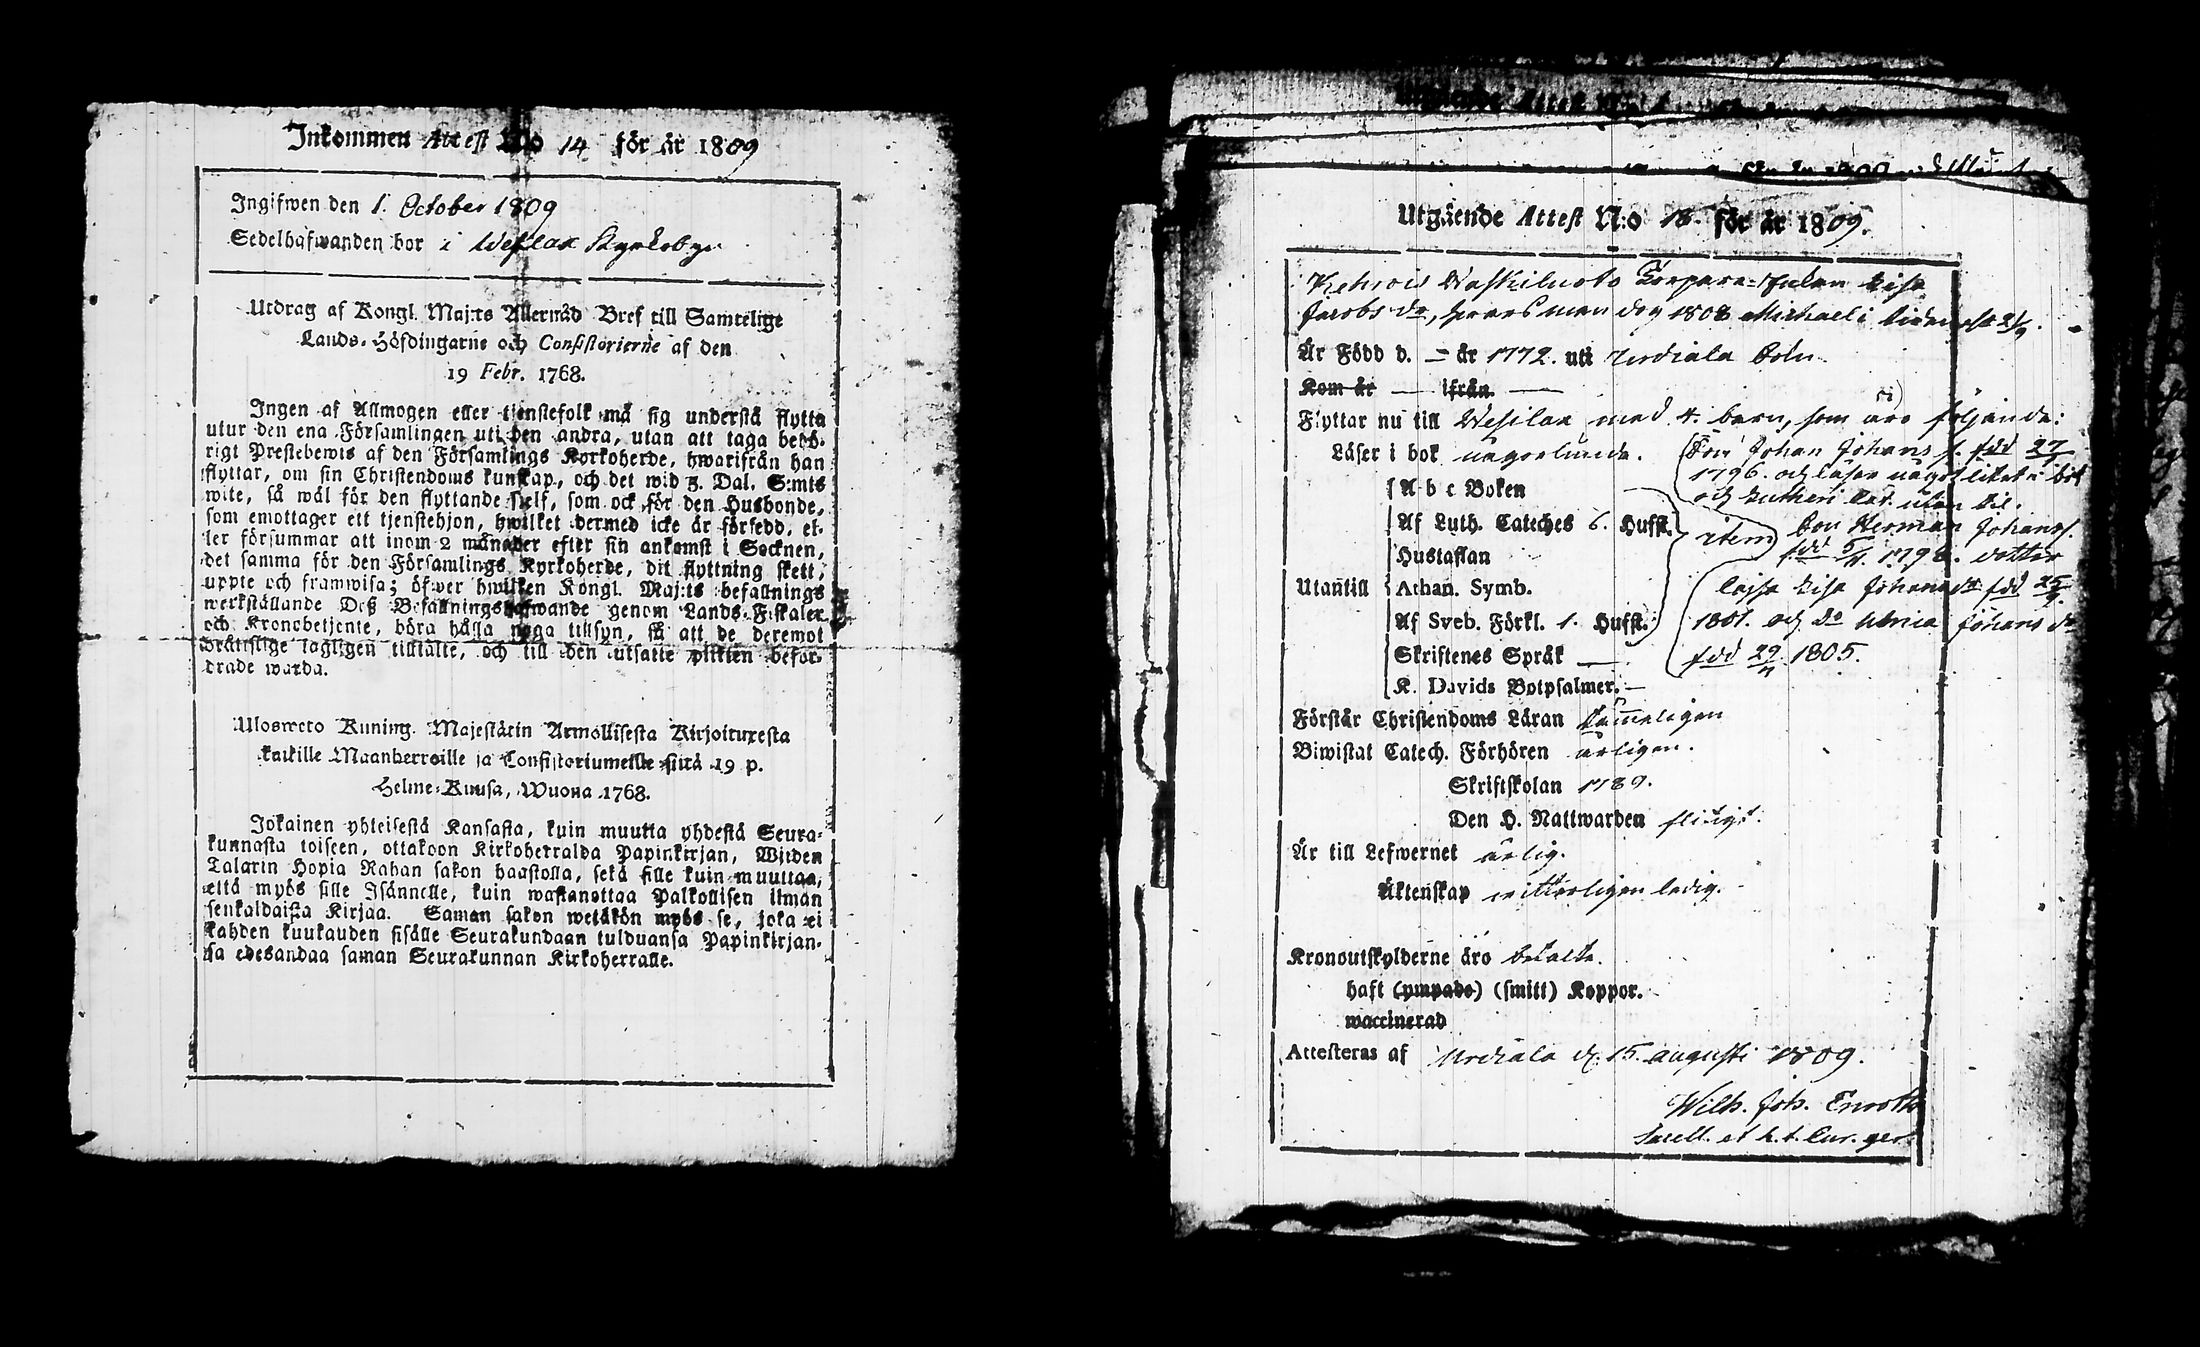 Inkommen Attest No 14 för år 1809
Ingifwen den 1. October 1809
Sedelhafwanden bor i Wesilax Kyrkoby
Utdrag af Kongl. Maj:ts Allernåd Bref till Samtelige
Lands-Höfdingarne och Consistorierne af den
19 Febr. 1768.
Ingen af Allmogen eller tjenstefolk må sig understå flytta
utur den ena Församlingen uti den andra, utan att taga behö-
rigt Prestebewis af den Församlings Kyrkoherde, hwarifrån han
flyttar, om sin Christendoms kunskap, och det wid 3. Dal. S:mts
wite, så wäl för den flyttande sielf, som ock för den Husbonde,
som emottager ett tjenstehjon, hwilket dermed icke är försedd, el-
ler försummar att inom 2 månader efter sin ankomst i Socknen,
det samma för den Församlings Kyrkoherde, dit flyttning skett,
uppte och framwisa; öfwer hwilken Kongl. Maj:ts befallnings
werkställande Deß Befallningshafwande genom Lands-Fiskaler
och Kronobetjente, böra hålla noga tillsyn, så att de deremot
bråttslige lagligen tilltalte, och till den utsatte plikten befor-
drade warda.
Uloswcto Kuning. Majestätin Armollisesta Kirjoituxesta
kaikille Maanherroille ja Consistoriumeille siitä 19 p.
Helme-Kuusa, Wuona 1768.
Jokainen yhteisestä Kansasta, kuin muutta yhdestä Seura-
kunnasta toiseen, ottakoon Kirkoherralda Papinkirjan, Wijden
Talarin Hopia Rahan sakon haastolla, sekä sille kuin muuttaa,
että myös sille Isännelle, kuin wastanottaa Palkollisen ilman
senkaldaista Kirjaa. Saman sakon wetäkön myös se, joka ei
kahden kuukauden sisälle Seurakundaan tulduansa Papinkirjan-
sa edesandaa saman Seurakunnan Kirkoherralle.
Utgående Attest N:o 18. för år 1809.
Kehrois Waskiluoto Torpare-Enkan Lisa
Jacobs dr, hwars man dog 1808 Michaeli tiden
Är Född d. — år 1772. uti Urdiala Sokn
Kom år — ifrån —
Flyttar nu till Wesilax med 4. barn, som äro följande:
Läser i bok någorlunda. Son Johan Johans s. född 27
1796. och läser något litet i bok
A b c Boken och Lutheri Cat. utan til.
Af Luth. Cateches 6. Hufst. item Son Herman Johans s.
Hustaflan född 1798. dotter
Utantill Athan. Symb. Cajsa Lisa Johans dr född 25
Af Sveb. Förkl. 1. Hufst. 1801. och Dr Ulrica Johans dr
Skriftenes Språk — född 29/11 1805.
K. Davids Botpsalmer. —
Förstår Christendoms Läran tämeligen
Biwistat Catech. Förhören årligen.
Skriftskolan 1789.
Den H. Nattwarden flitigt.
Är till Lefwernet ärlig.
Äktenskap witterligen ledig.
Kronoutskylderne äro betalte.
haft (ympade) (smitt) Koppor.
waccinerad
Attesteras af Urdiala d. 15. augusti 1809.
Wilh. Joh. Enroth
Sacell. et h. t. Cur. ger.